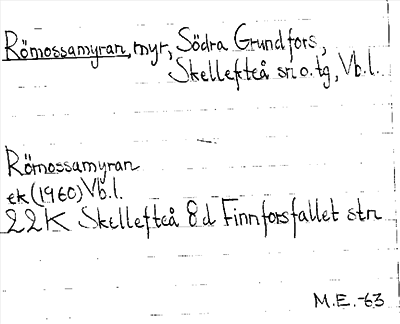 Römossamyran, myr, Södra Grundfors,
Skellefteå sn o. tg, Vb.l.
Römossamyran
ek (1960) Vb.l.
22K Skellefteå 8d Finnforsfallet stn
M.E.-63